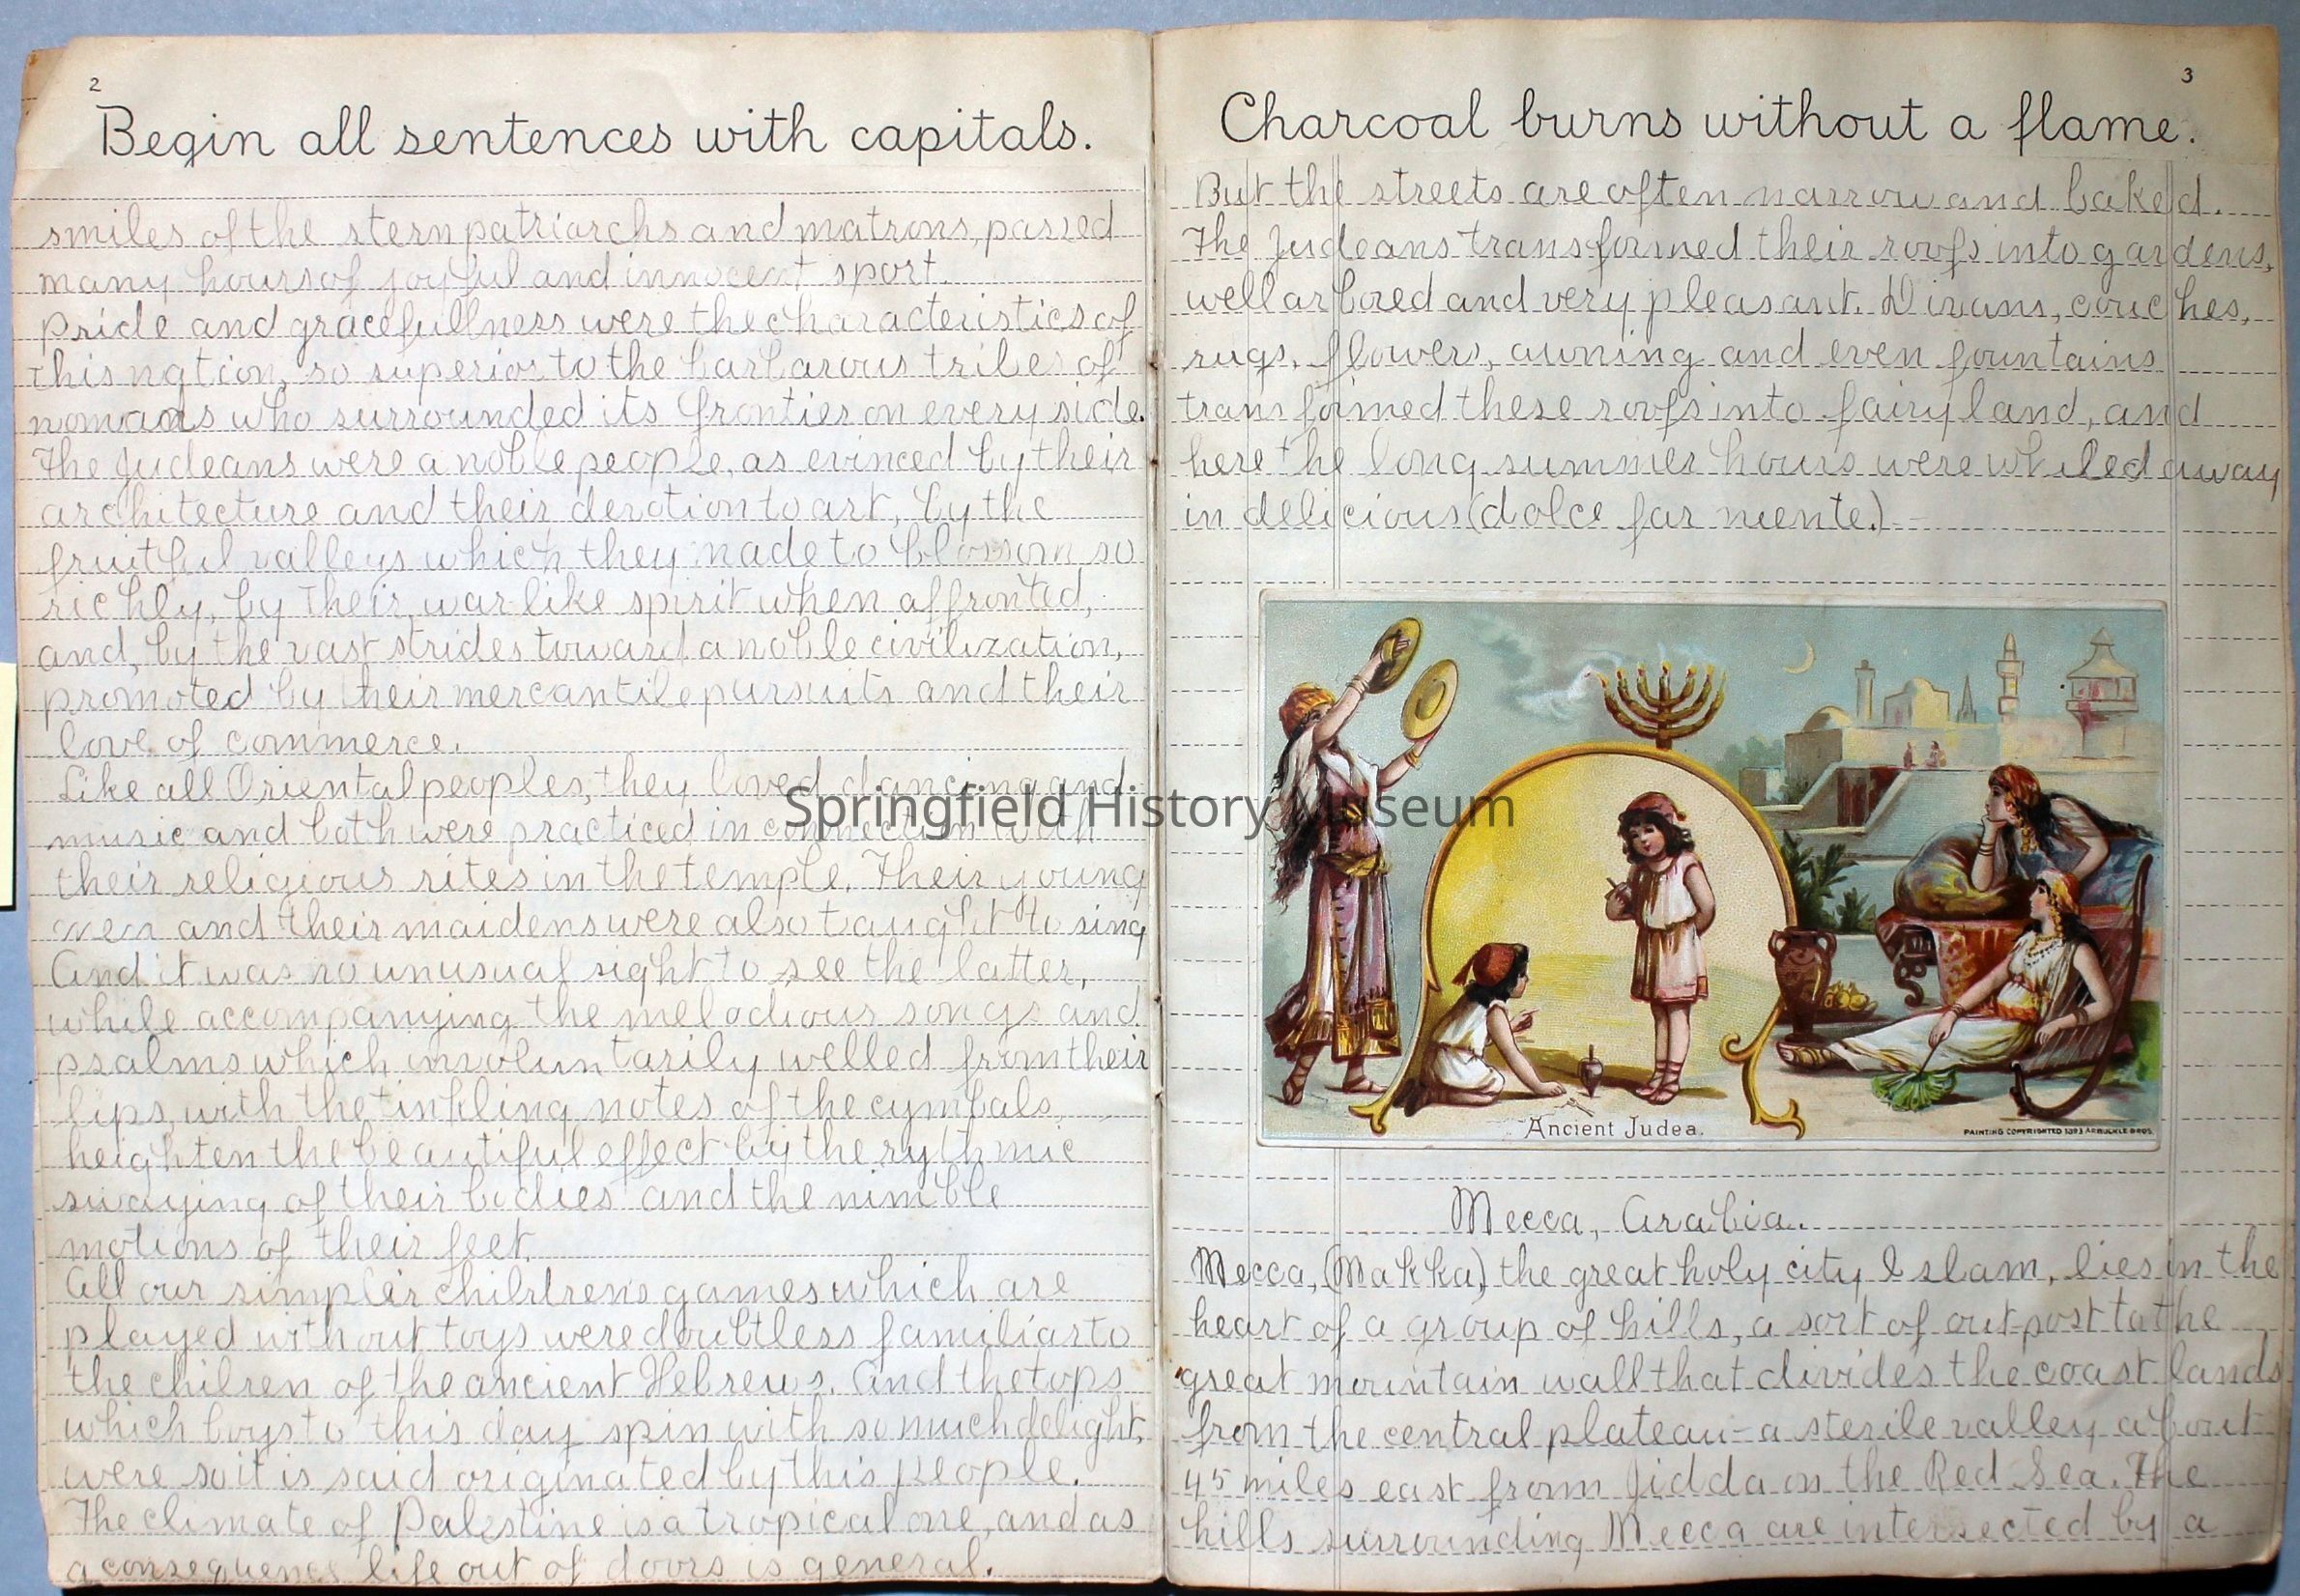 2
Begin all sentences with capitals.
smiles of the stern patriarchs and matrons, passed
many hours of joyful and innocent sport.
Pride and gracefullness were the characteristics of
this nation, so superior to the barbarous tribes of
nomads who surrounded its frontier on every side.
The Judeans were a noble people, as evinced by their
architecture and their devotion to art, by the
fruitful valleys which they made to blossom so
richly, by their war like spirit when affronted,
and, by the vast strides toward a noble civilization,
promoted by their mercantile pursuits and their
love of commerce.
Like all Oriental peoples, they loved dancing and
music and both were practiced in connection with
their religious rites in the temple. Their young
men and their maidens were also taught to sing
And it was no unusual sight to see the latter,
while accompanying the melodious songs and
psalms which involuntarily welled from their
lips, with the tinkling notes of the cymbals,
heighten the beautiful effect by the rythmic
swaying of their bodies and the nimble
motions of their feet.
All our simpler childrens games which are
played without toys were doubtless familiar to
the chilren of the ancient Hebrews. And the tops
which boys to this day spin with so much delight,
were so it is said originated by this people.
The climate of Palestine is a tropical one, and as
a consequence life out of doors is general.
3
Charcoal burns without a flame.
But the streets are often narrow and baked.
The Judeans transformed their roofs into gardens,
well arbored and very pleasant. Divans, couches,
rugs, flowers, awning and even fountains
transformed these roofs into fairy land, and
here the long summer hours were whiled away
in delicious (dolce far niente.)
Ancient Judea.
PAINTING COPYRIGHTED 1893 ARBUCKLE BROS.
Mecca, Arabia.
Mecca, (Makka) the great holy city Islam, lies in the
heart of a group of hills, a sort of outpost to the
great mountain wall that divides the coast lands
from the central plateau - a sterile valley about
45 miles east from Jidda on the Red Sea. The
hills surrounding Mecca are intersected by a
Springfield History Museum